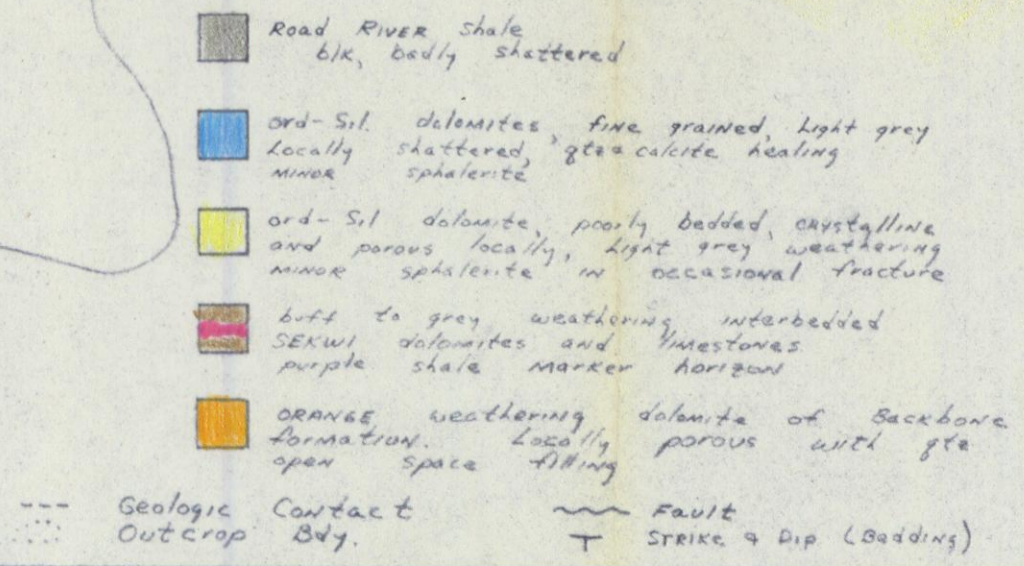 Road River shale
blk, badly shattered
ord-Sil. dolomites, fine grained, Light grey
Locally shattered, qtz & calcite healing
MINOR sphalerite
ord-Sil dolomite, poorly bedded, crystalline
and porous locally, Light grey weathering
MINOR sphalerite IN occasional fracture
buff to grey weathering interbedded
SEKWI dolomites and limestones
purple shale marker horizon
ORANGE weathering dolomite of Backbone
formation. Locally porous with qtz
open space filling
Geologic Contact
Fault
Outcrop Bdy.
STRIKE & Dip (Bedding)